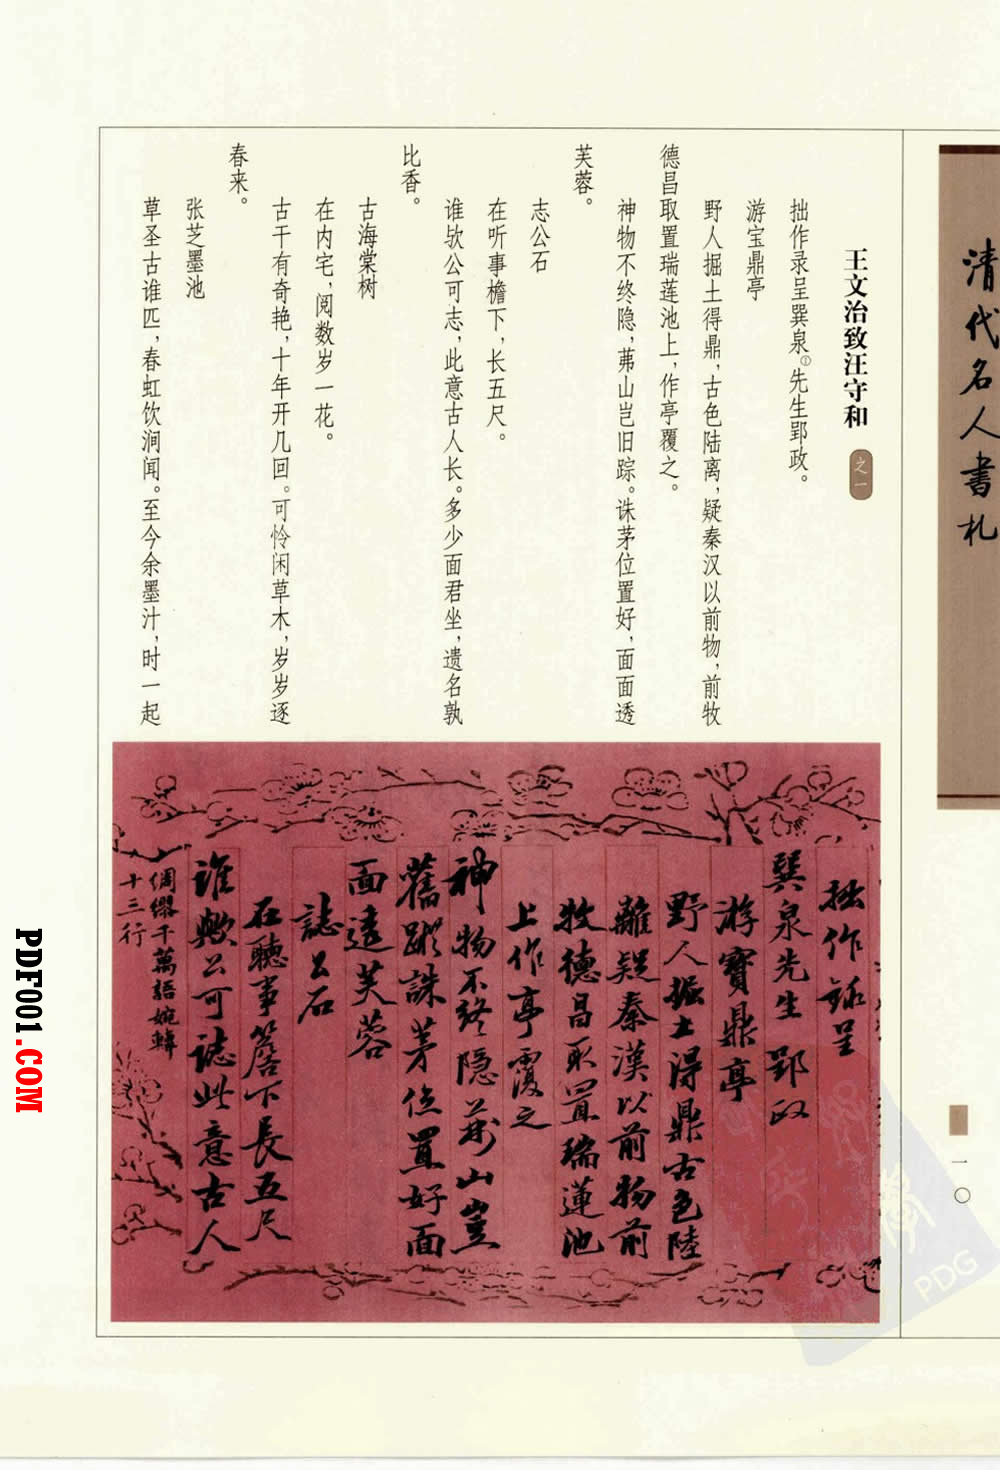 清代名人書札
一〇
王文治致汪守和 之一
拙作录呈巽泉①先生郢政。
游宝鼎亭
野人掘土得鼎，古色陆离，疑秦汉以前物，前牧
德昌取置瑞莲池上，作亭覆之。
神物不终隐，茀山岂旧踪。诛茅位置好，面面透
芙蓉。
志公石
在听事檐下，长五尺。
谁欤公可志，此意古人长。多少面君坐，遗名孰
比香。
古海棠树
在内宅，阅数岁一花。
古干有奇艳，十年开几回。可怜闲草木，岁岁逐
春来。
张芝墨池
草圣古谁匹，春虹饮涧闻。至今余墨汁，时一起
拙作録呈
巽泉先生 郢政
游寶鼎亭
野人掘土得鼎古色陸
離疑秦漢以前物前
牧德昌取置瑞蓮池
上作亭覆之
神物不終隱茀山豈
舊蹤誅茅位置好面
面透芙蓉
誌公石
在聽事簷下長五尺
誰歟公可誌此意古人
綢繆千萬語婉轉
十三行
PDF001.COM
PDG